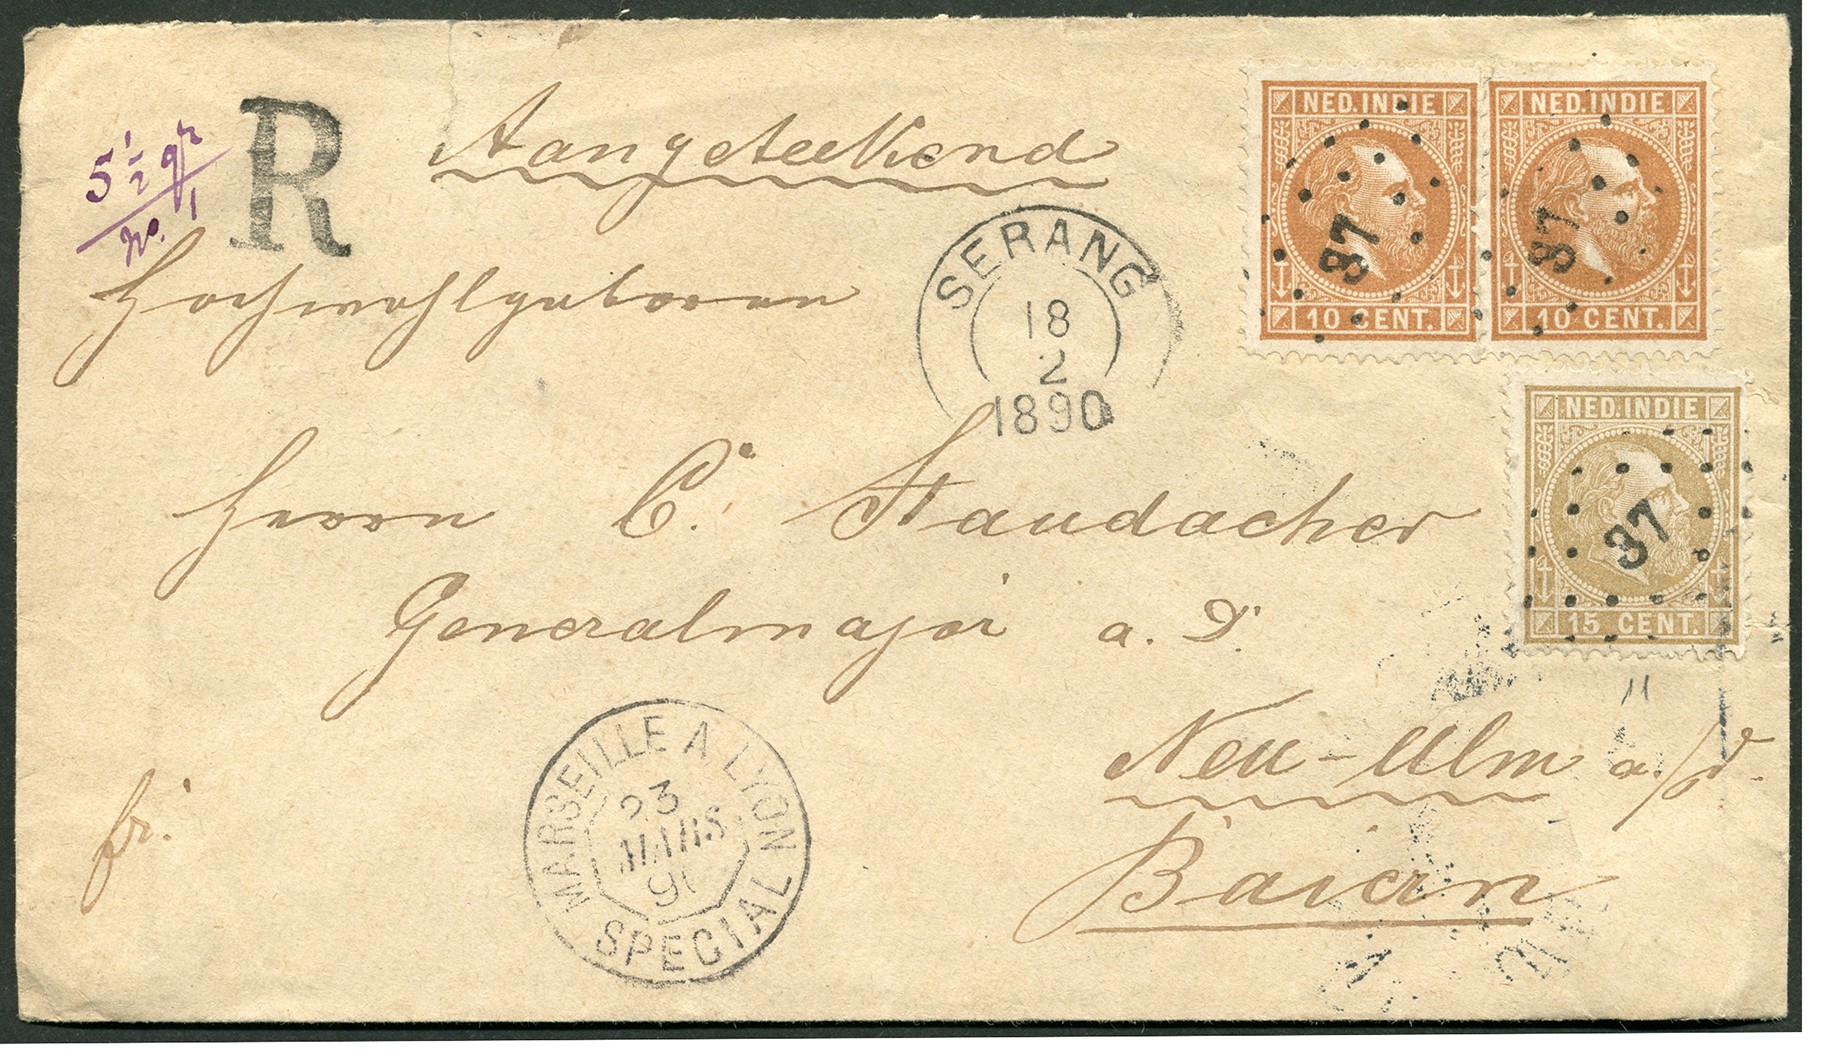 5 1/2 gr
No. 1
R
Aangeteekend
NED. INDIE
37
10 CENT.
NED. INDIE
37
10 CENT.
SERANG
18
2
1890
Hochwohlgeboren
NED. INDIE
37
15 CENT.
Herrn C. Staudacher
Generalmajor a. D.
11
MARSEILLE A LYON
23
MARS
90
SPECIAL
Neu-Ulm a/D.
fr.
Baiern